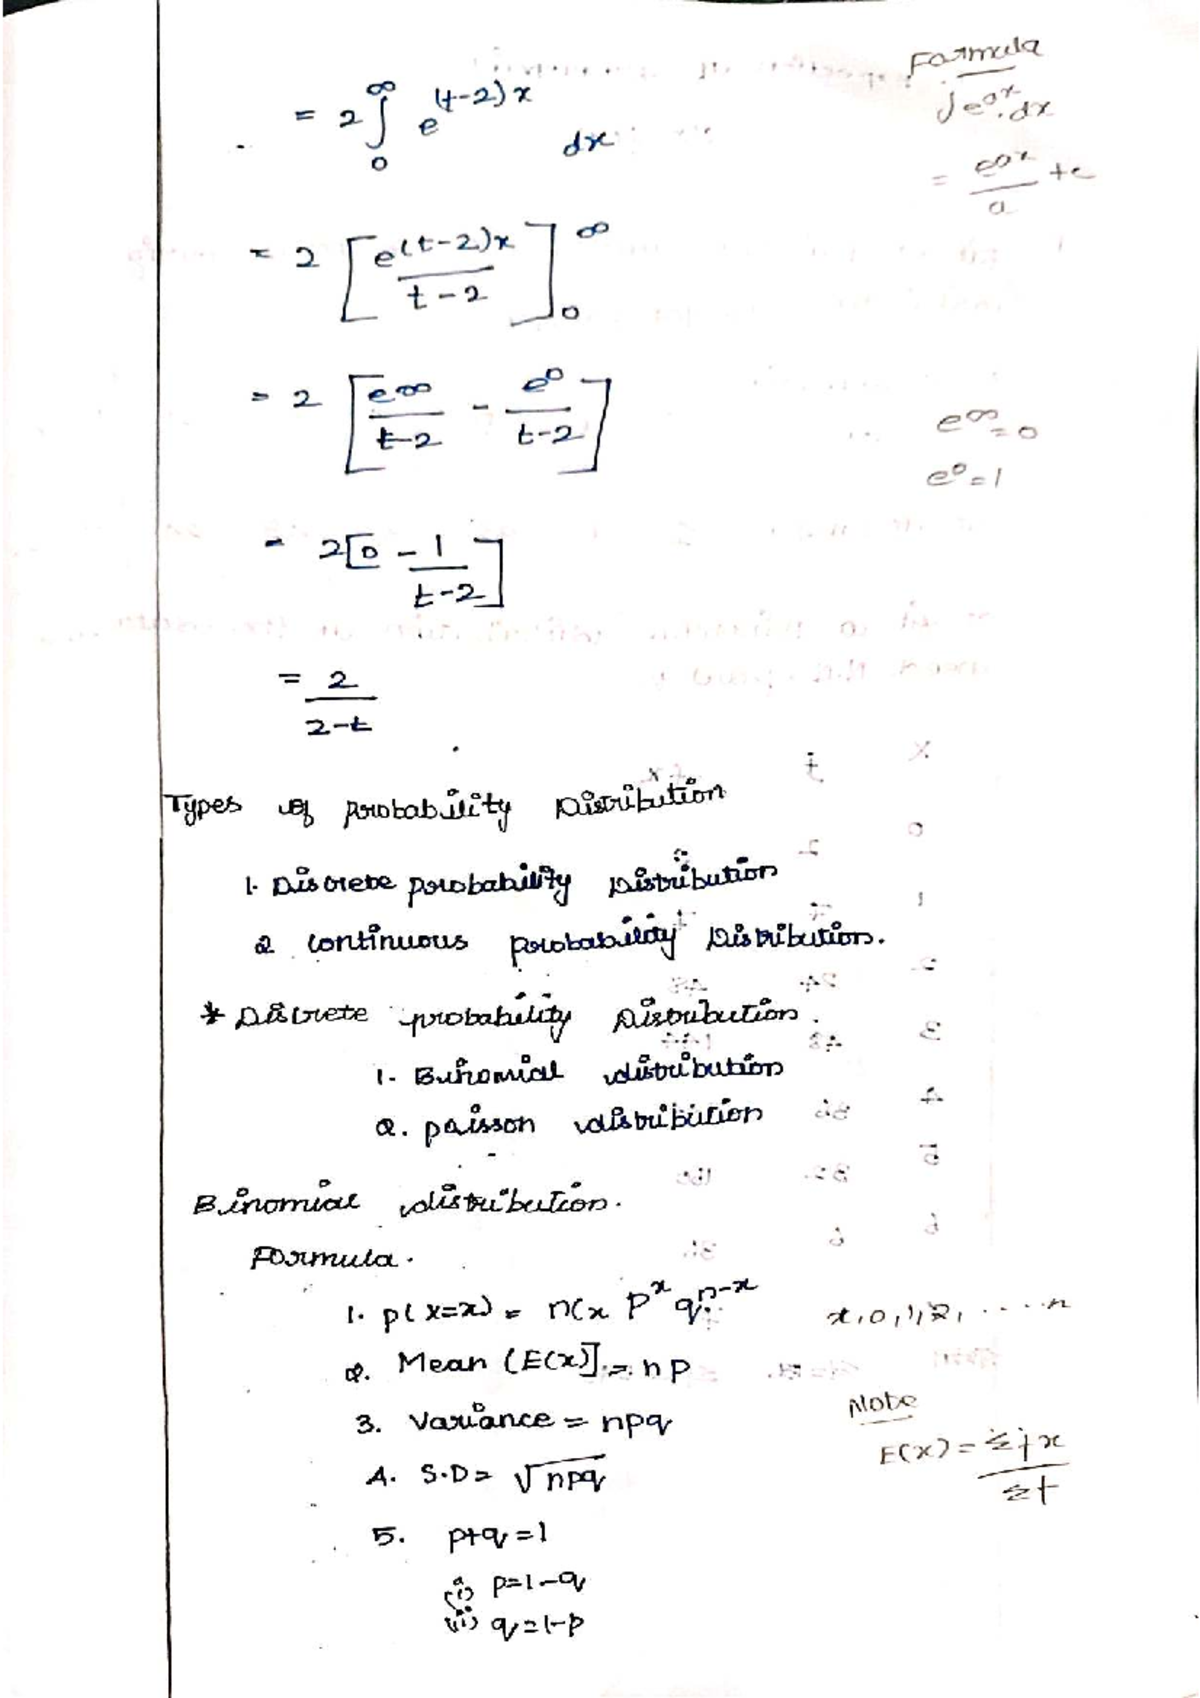 = 2 ∫₀^∞ e^(t-2)x dx
Formula
∫e^ax.dx
= e^ax/a + c
= 2 [e^(t-2)x / t-2]₀^∞
= 2 [e^∞/t-2 - e^0/t-2]
e^∞ = 0
e^0 = 1
= 2[0 - 1/t-2]
= 2/2-t
Types of probability Distribution
1. Discrete probability Distribution
2. continuous probability Distribution.
* Discrete probability Distribution.
1. Binomial distribution
2. paisson distribution
Binomial distribution.
Formula.
1. p(x=x) = nCx p^x q^n-x x,0,1,2, ..... n
2. Mean (E(x)] = np
3. Variance = npq
4. S.D = √npq
Note
E(x) = Σfx/Σf
5. p+q=1
(i) p=1-q
(ii) q=1-p